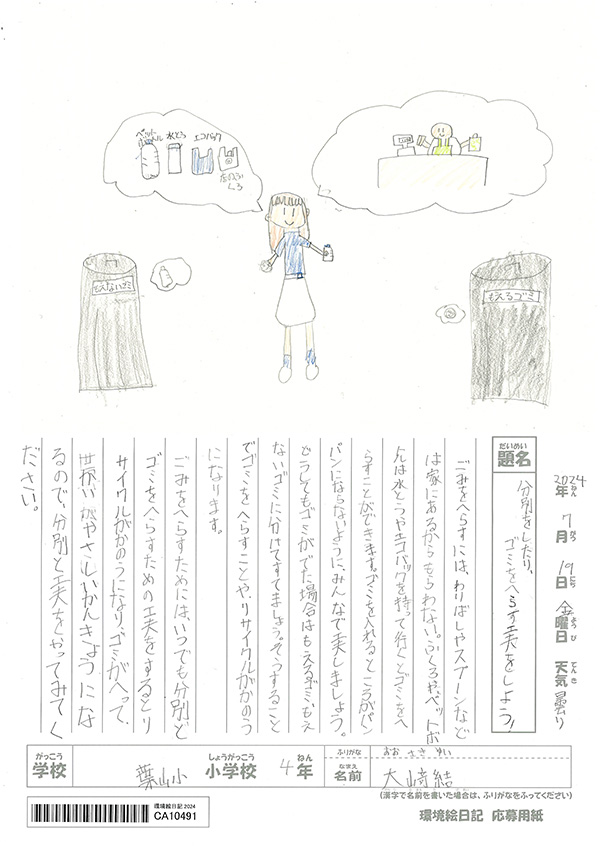 ペットボトル
水とう
エコバック
もえないゴミ
もえるゴミ
2024年 7月 19日 金曜日 天気 曇り
ねん がつ にち ようび てんき
だいめい
題名
分別をしたり、
ゴミをへらす工夫をしよう!
ごみをへらすには、わりばしやスプーンなど
は家にあるからもらわない。ふくろやペットボ
トルは水とうやエコバックを持って行くとゴミをへ
らすことができます。ゴミを入れるところがパン
パンにならないように、みんなで工夫しましょう。
どうしてもゴミがでた場合はもえるゴミ、もえ
ないゴミに分けてすてましょう。そうすること
でゴミをへらすことや、リサイクルがかのう
になります。
ごみをへらすためには、いつでも分別と
ゴミをへらすための工夫をするとリ
サイクルがかのうになり、ゴミがへって、
世界がやさしいかんきょうにな
るので、分別と工夫をやってみてく
ださい。
がっこう
学校
葉山小
しょうがっこう
小学校
4年
ねん
ふりがな
おおさき ゆい
なまえ
名前
大崎結
(漢字で名前を書いた場合は、ふりがなをふってください)
環境絵日記 2024
CA10491
環境絵日記 応募用紙